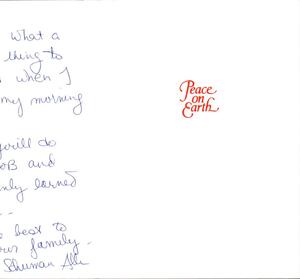 What a
thing to
when I
my morning
will do
OB and
only earned
- - -
best to
family -
Schuman
Peace
on
Earth